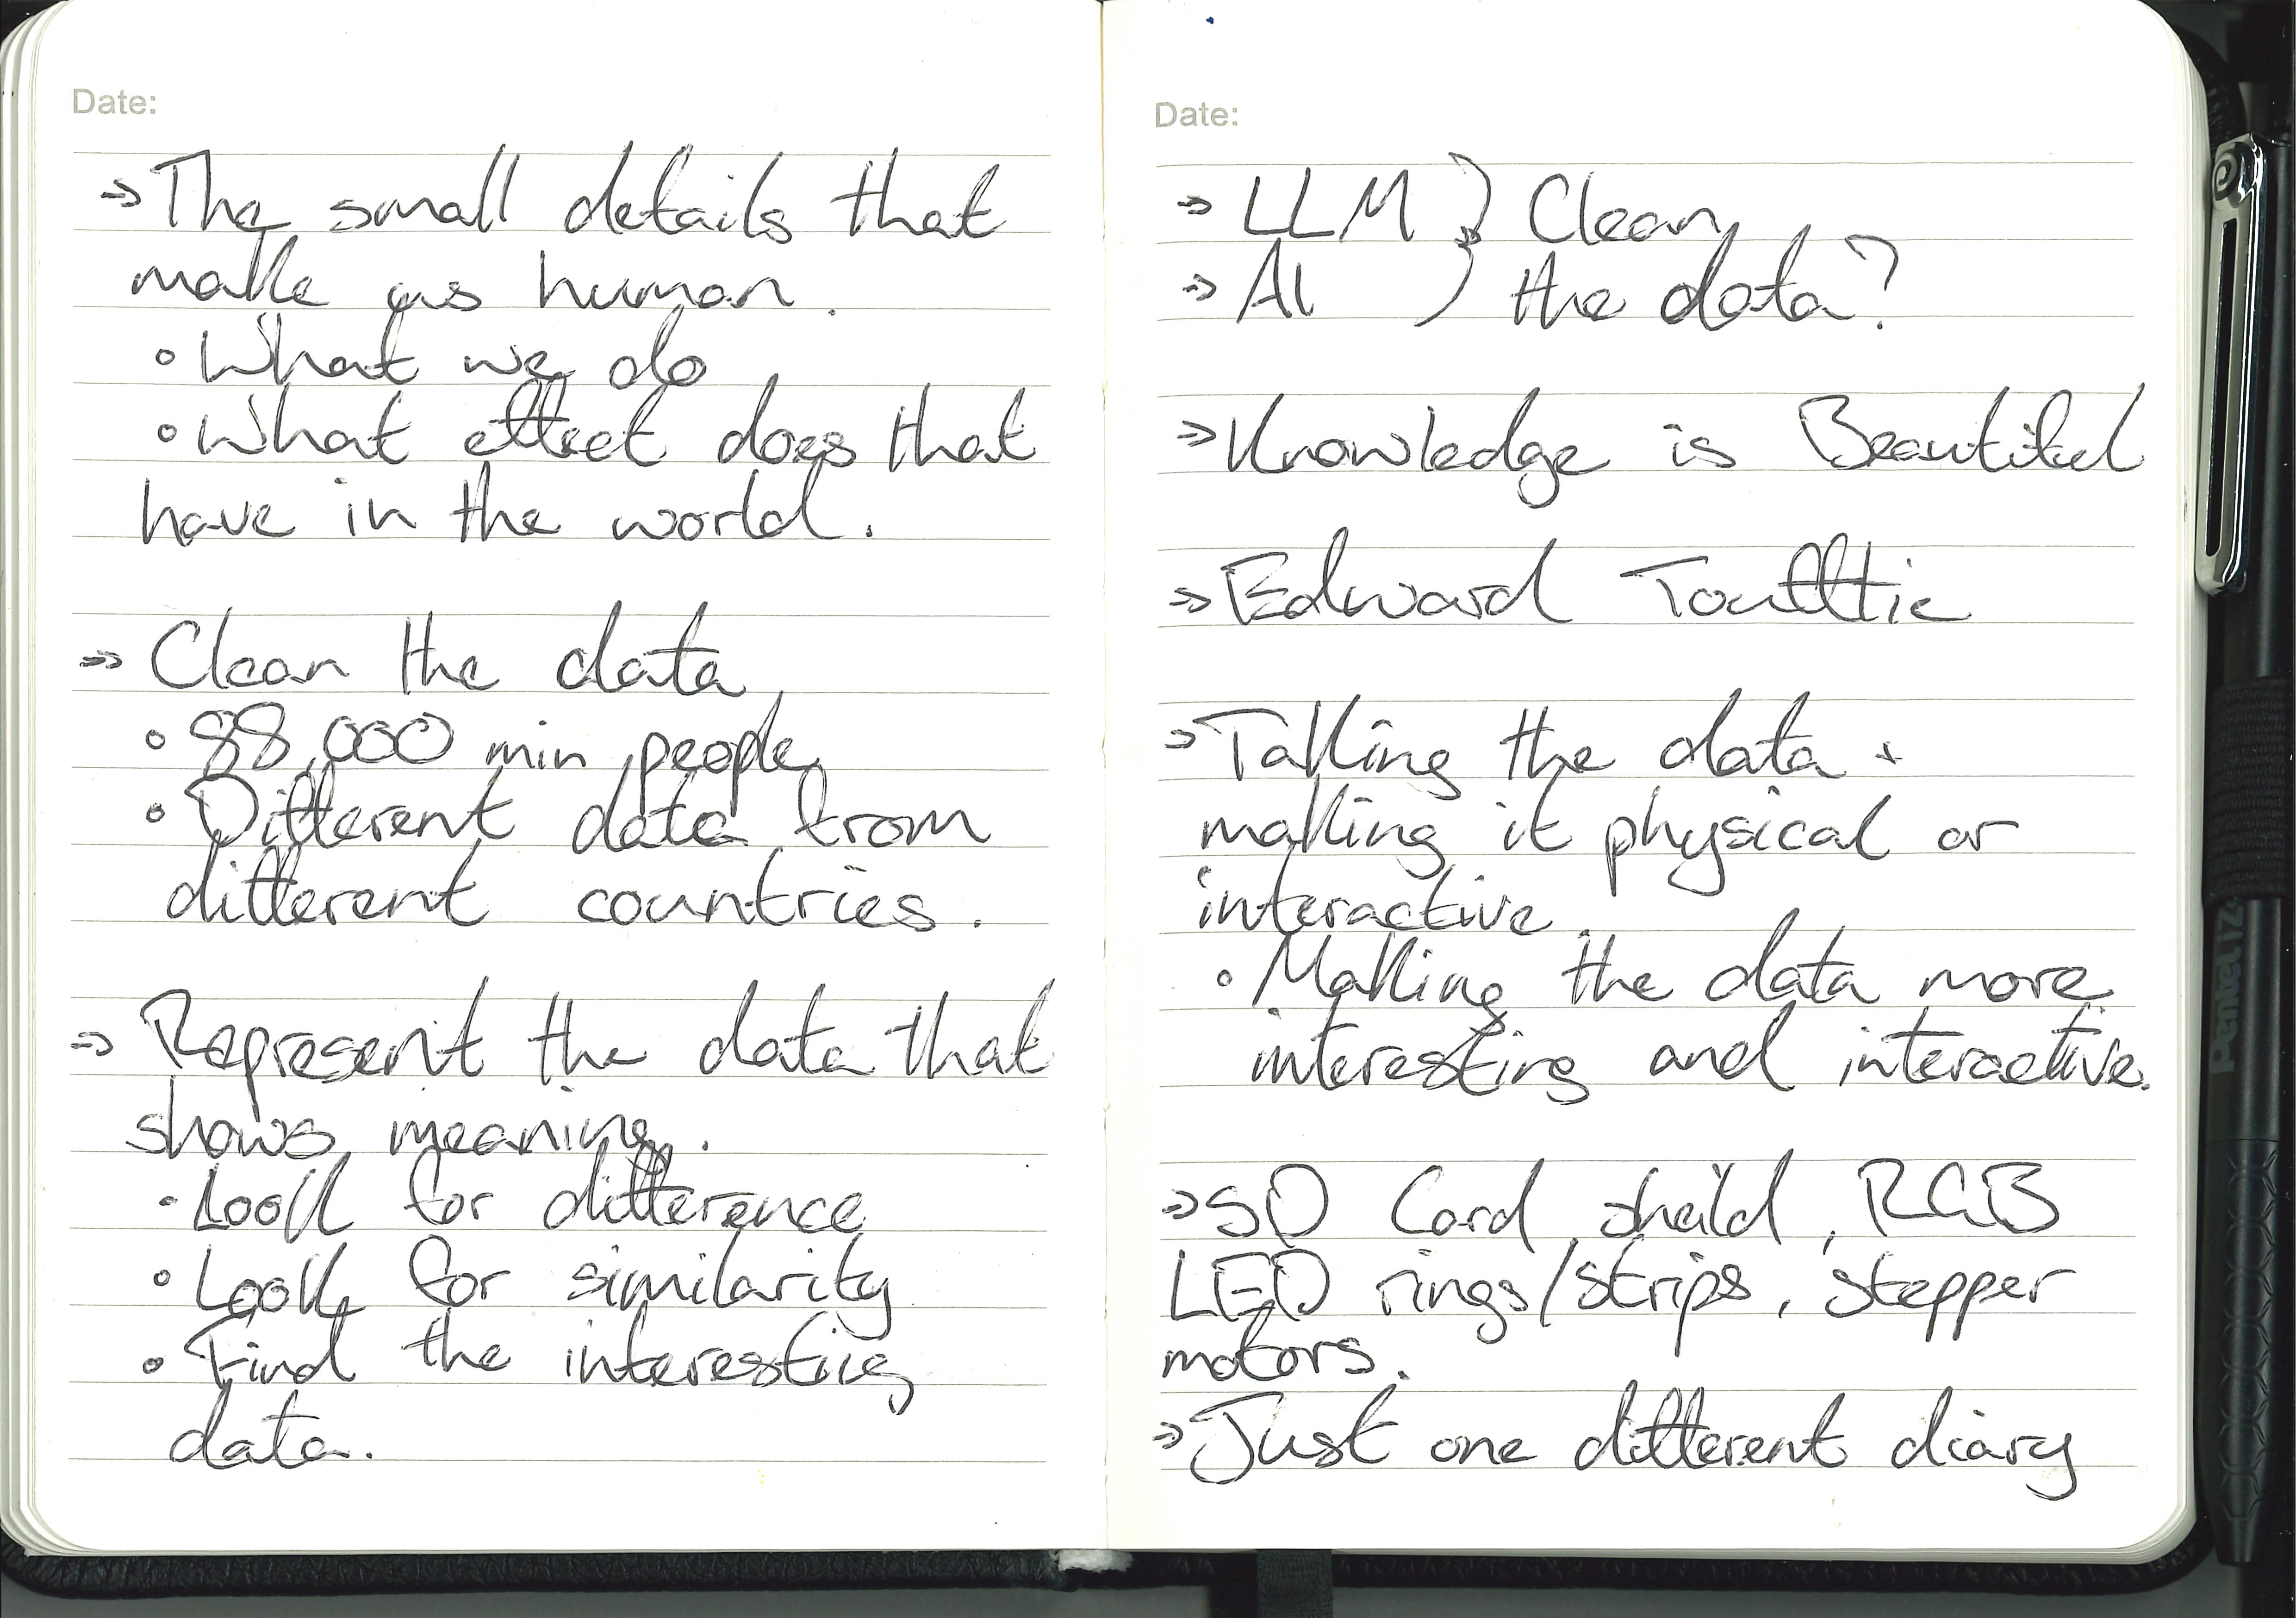 Date:
→ The small details that
make us human.
• What we do
• What effect does that
have in the world.
→ Clean the data
• 88,000 min people
• Different data from
different countries.
→ Represent the data that
shows meaning.
• Look for difference
• Look for similarity
• Find the interesting
data.
Date:
→ LLM } Clean
→ AI } the data?
→ Knowledge is Beautiful
→ Edward
→ Taking the data +
making it physical or
interactive.
• Making the data more
interesting and interactive.
→ SD Card sheild, RGB
LED rings/strips, stepper
motors.
→ Just one different diary
Pentel